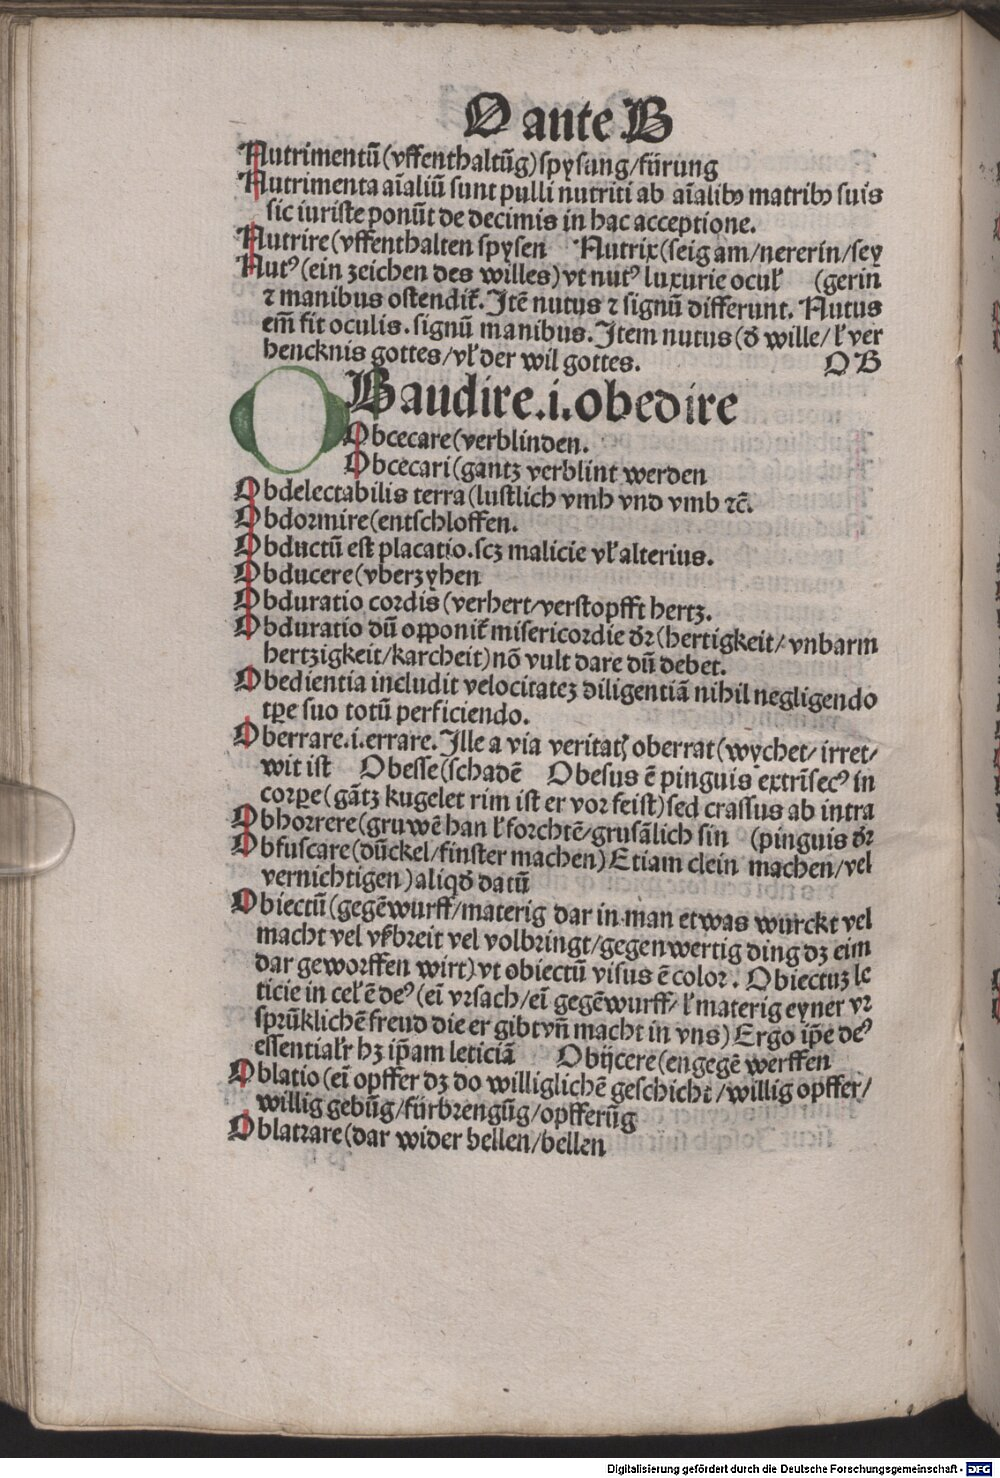 O ante B
Nutrimentū (vffenthaltūg) spysung/fürung
Nutrimenta aīaliū sunt pulli nutriti ab aīalibꝰ matribꝰ suis
sic iuriste ponūt de decimis in hac acceptione.
Nutrire (vffenthalten spysen Nutrix (seigam/nererin/sey
Nutꝰ (ein zeichen des willes) vt nutꝰ luxurie ocul̕ (gerin
⁊ manibus ostendit̕. Itē nutus ⁊ signū differunt. Nutus
em̄ fit oculis. signū manibus. Item nutus (d̕ wille/ l̕ ver
hencknis gottes/vl̕ der wil gottes. O B
OBaudire .i. obedire
Obcecare (verblinden.
Obcecari (gantz verblint werden
Obdelectabilis terra (lustlich vmb vnd vmb ⁊c̄.
Obdormire (entschloffen.
Obductū est placatio. scꝫ malicie vl̕ alterius.
Obducere (vberzyhen
Obduratio cordis (verhert/verstopfft hertz.
Obduratio dū opponit̕ misericordie d̕r (hertigkeit/vnbarm
hertzigkeit/karcheit) nō vult dare dū debet.
Obedientia includit velocitateꝫ diligentiā nihil negligendo
tꝑe suo totū perficiendo.
Oberrare .i. errare. Ille a via veritatꝭ oberrat (wychet/irret/
wit ist Obesse (schadē Obesus ē pinguis extrīsecꝰ in
corꝑe (gātz kugelet rim ist er vor feist) sed crassus ab intra
Obhorrere (gruwē han l̕ forchtē/grusālich sin (pinguis d̕r
Obfuscare (dūckel/finster machen) Etiam clein machen/vel
vernichtigen) aliqd̕ datū
Obiectū (gegēwurff/materig dar in man etwas wurckt vel
macht vel vßbreit vel volbringt/gegenwertig ding dꝫ eim
dar geworffen wirt) vt obiectū visus ē color. Obiectuꝫ le
ticie in cel̕ ē deꝰ (eī vrsach/eī gegēwurff/ l̕ materig eyner vr
sprūklichē freud die er gibt vn̄ macht in vns) Ergo ip̄e deꝰ
essential̕r hꝫ ip̄am leticiā Obijcere (engegē werffen
Oblatio (eī opffer dꝫ do williglichē geschicht/willig opffer/
willig gebūg/fürbrengūg/opfferūg
Oblatrare (dar wider bellen/bellen
Digitalisierung gefördert durch die Deutsche Forschungsgemeinschaft - DFG